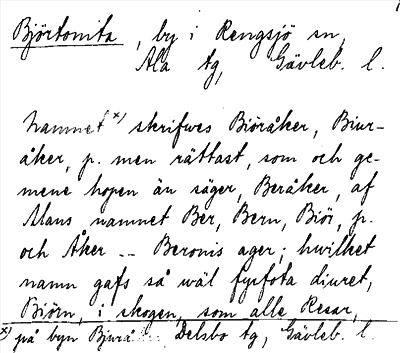 Björtomta, by i Rengsjö sn,
Ala tg, Gävleb. l.
Namnet x) skrifwes Biöråker, Biur-
åker, p. men rättast, som och ge-
mene hopen än säger, Beråker, af
Mans namnet Ber, Bern, Biör, p.
och Åker -- Beronis ager; hwilket
namn gafs så wäl fyrfota diuret,
Biörn, i skogen, som alle Resar,
x) på byn Bjurå... Delsbo tg, Gävleb. l.